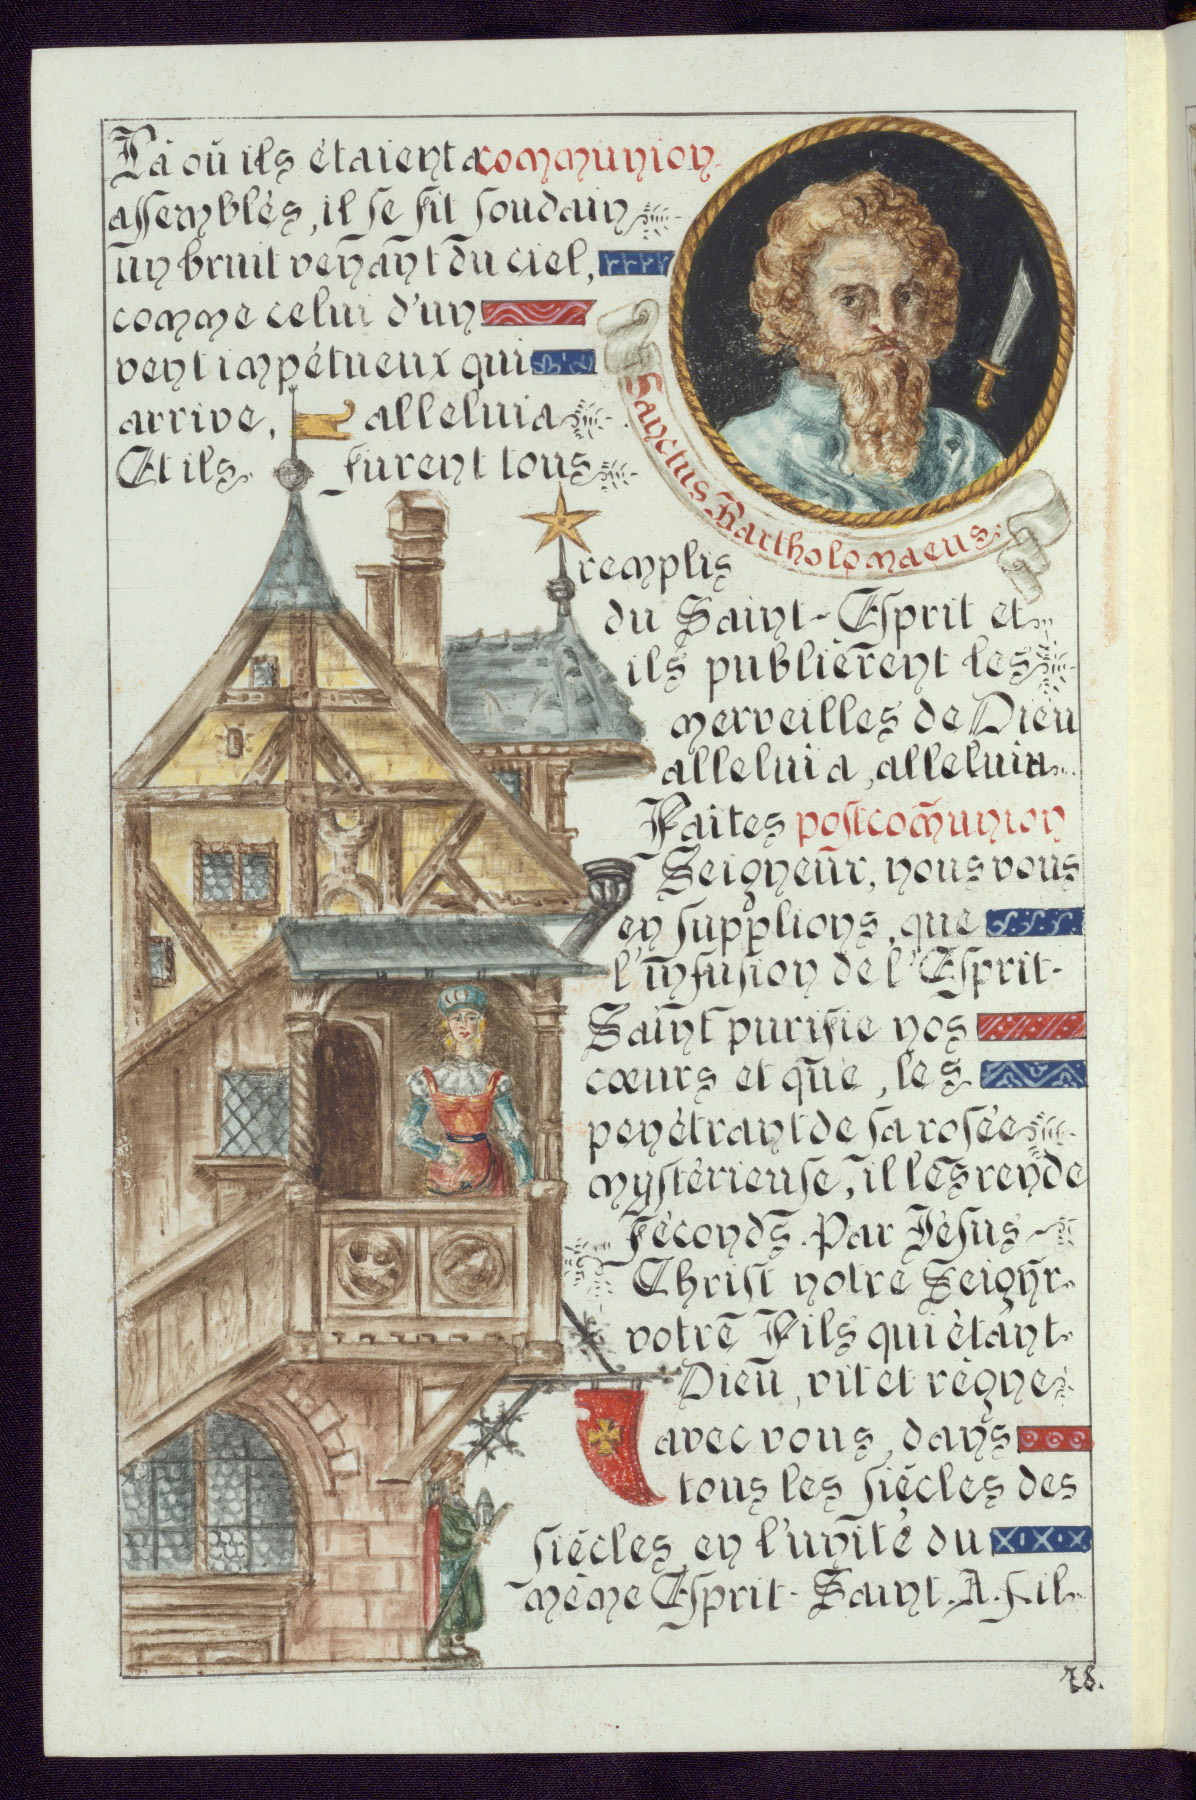 Là où ils étaient a communion
assemblés, il se fit soudain
un bruit venant du ciel,
comme celui d'un
vent impétueux qui
arrive, alleluia
Et ils furent tous
Sanctus Bartholomaeus
remplis
du Saint-Esprit et
ils publièrent les
merveilles de Dieu
alleluia, alleluia
Faites postcom̄union
Seigneur, nous vous
en supplions, que
l'infusion de l'Esprit-
Saint purifie nos
cœurs et que, les
penétrant de sa rosée
mystérieuse, il les rende
féconds. Par Jésus
Christ notre Seigñr
votre Fils qui étant
Dieu, vit et règne
avec vous, dans
tous les siècles des
siècles, en l'unité du
même Esprit-Saint. A. s. il
78.